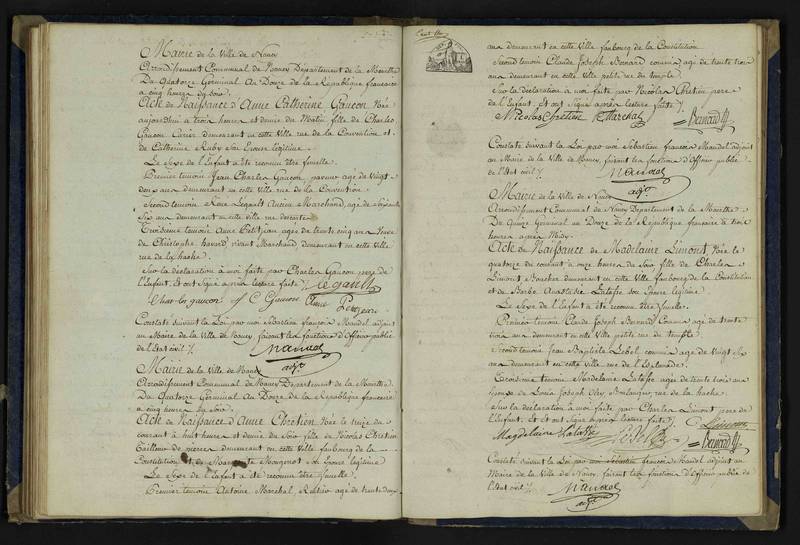 Mairie de la Ville de Nancy
Arrondissement Communal de Nancy Département de la Meurthe
Du Quatorze Germinal An Douze de la République française
a cinq heures du soir.
Acte de Naissance d'Anne Catherine Gaucon Née
aujourdhui a trois heures et demie du Matin fille de Charles
Gaucon Carier demeurant en cette Ville rue de la Convention et
de Catherine Ruby son Epouse légitime.
Le Sexe de l'Enfant a été reconnu être femelle.
Premier temoin Jean Charles Gaucon paveur agé de Vingt
deux ans demeurant en cette Ville rue de la Convention
Second temoin Legault Ancien Marchand, agé de
Six ans demeurant en cette Ville rue
Troisieme temoin Anne Petitjean agée de trente cinq ans
de Christophe vivant Marchand demeurant en cette Ville
rue de la hache.
Sur la déclaration à moi faite par Charles Gaucon pere de
l'Enfant, et ont signé après lecture faite /. Legault
Charles gaucon J C Gaucon Anne Petitjean
Constaté suivant la Loi par moi Sébastien françois Mandel adjoint
au Maire de la Ville de Nancy, faisant les fonctions d'officier public
de l'Etat civil /. Mandel
adjt
Mairie de la Ville de Nancy
Arrondissement Communal de Nancy Département de la Meurthe
Du Quatorze Germinal An Douze de la République française
a cinq heures du soir.
Acte de Naissance d'Anne Chretien Née le treize du
courant à huit heures et demie du Soir fille de Nicolas Chretien
Tailleur de pierres demeurant en cette Ville faubourg de la
Constitution et de Mougenot son Epouse légitime
Le Sexe de l'Enfant a été reconnu être femelle.
Premier temoin Antoine Marchal, Rentier agé de trente deux
ans demeurant en cette Ville faubourg de la Constitution.
Second temoin Claude Joseph Bernard commis agé de trente trois
ans demeurant en cette Ville petite rue du temple.
Sur la déclaration à moi faite par Nicolas Chretien pere
de l'Enfant, et ont signé après lecture faite /.
Nicolas Chretien Marchal Bernard
Constaté suivant la Loi par moi Sébastien françois Mandel adjoint
au Maire de la Ville de Nancy, faisant les fonctions d'officier public
de l'Etat civil /. Mandel
adjt
Mairie de la Ville de Nancy
Arrondissement Communal de Nancy Département de la Meurthe
Du Quinze Germinal an Douze de la République française à trois
heures après Midy.
Acte de Naissance de Madelaine Limont Née le
quatorze du courant à onze heures du Soir fille de Charles
Limont Boucher demeurant en cette Ville faubourg de la Constitution
et de Barbe Anastasie Latasse son Epouse légitime
Le Sexe de l'Enfant a été reconnu être femelle.
Premier temoin Claude Joseph Bernard Commis agé de trente
trois ans demeurant en cette Ville petite rue du temple
Second temoin Jean Baptiste Lebel commis agé de Vingt Six
ans demeurant en cette Ville rue de l'Esplanade.
Troisieme temoin Madelaine Latasse agée de trente trois ans
Epouse de Louis Joseph Boulanger, rue de la hache.
Sur la déclaration à moi faite par Charles Limont pere de
l'Enfant. Et ont signé après lecture faite /. Limont
Magdeleine Latasse Lebel Bernard
Constaté suivant la Loi par moi Sébastien françois Mandel adjoint au
Maire de la Ville de Nancy, faisant les fonctions d'officier public de
l'Etat civil /. Mandel
adjt